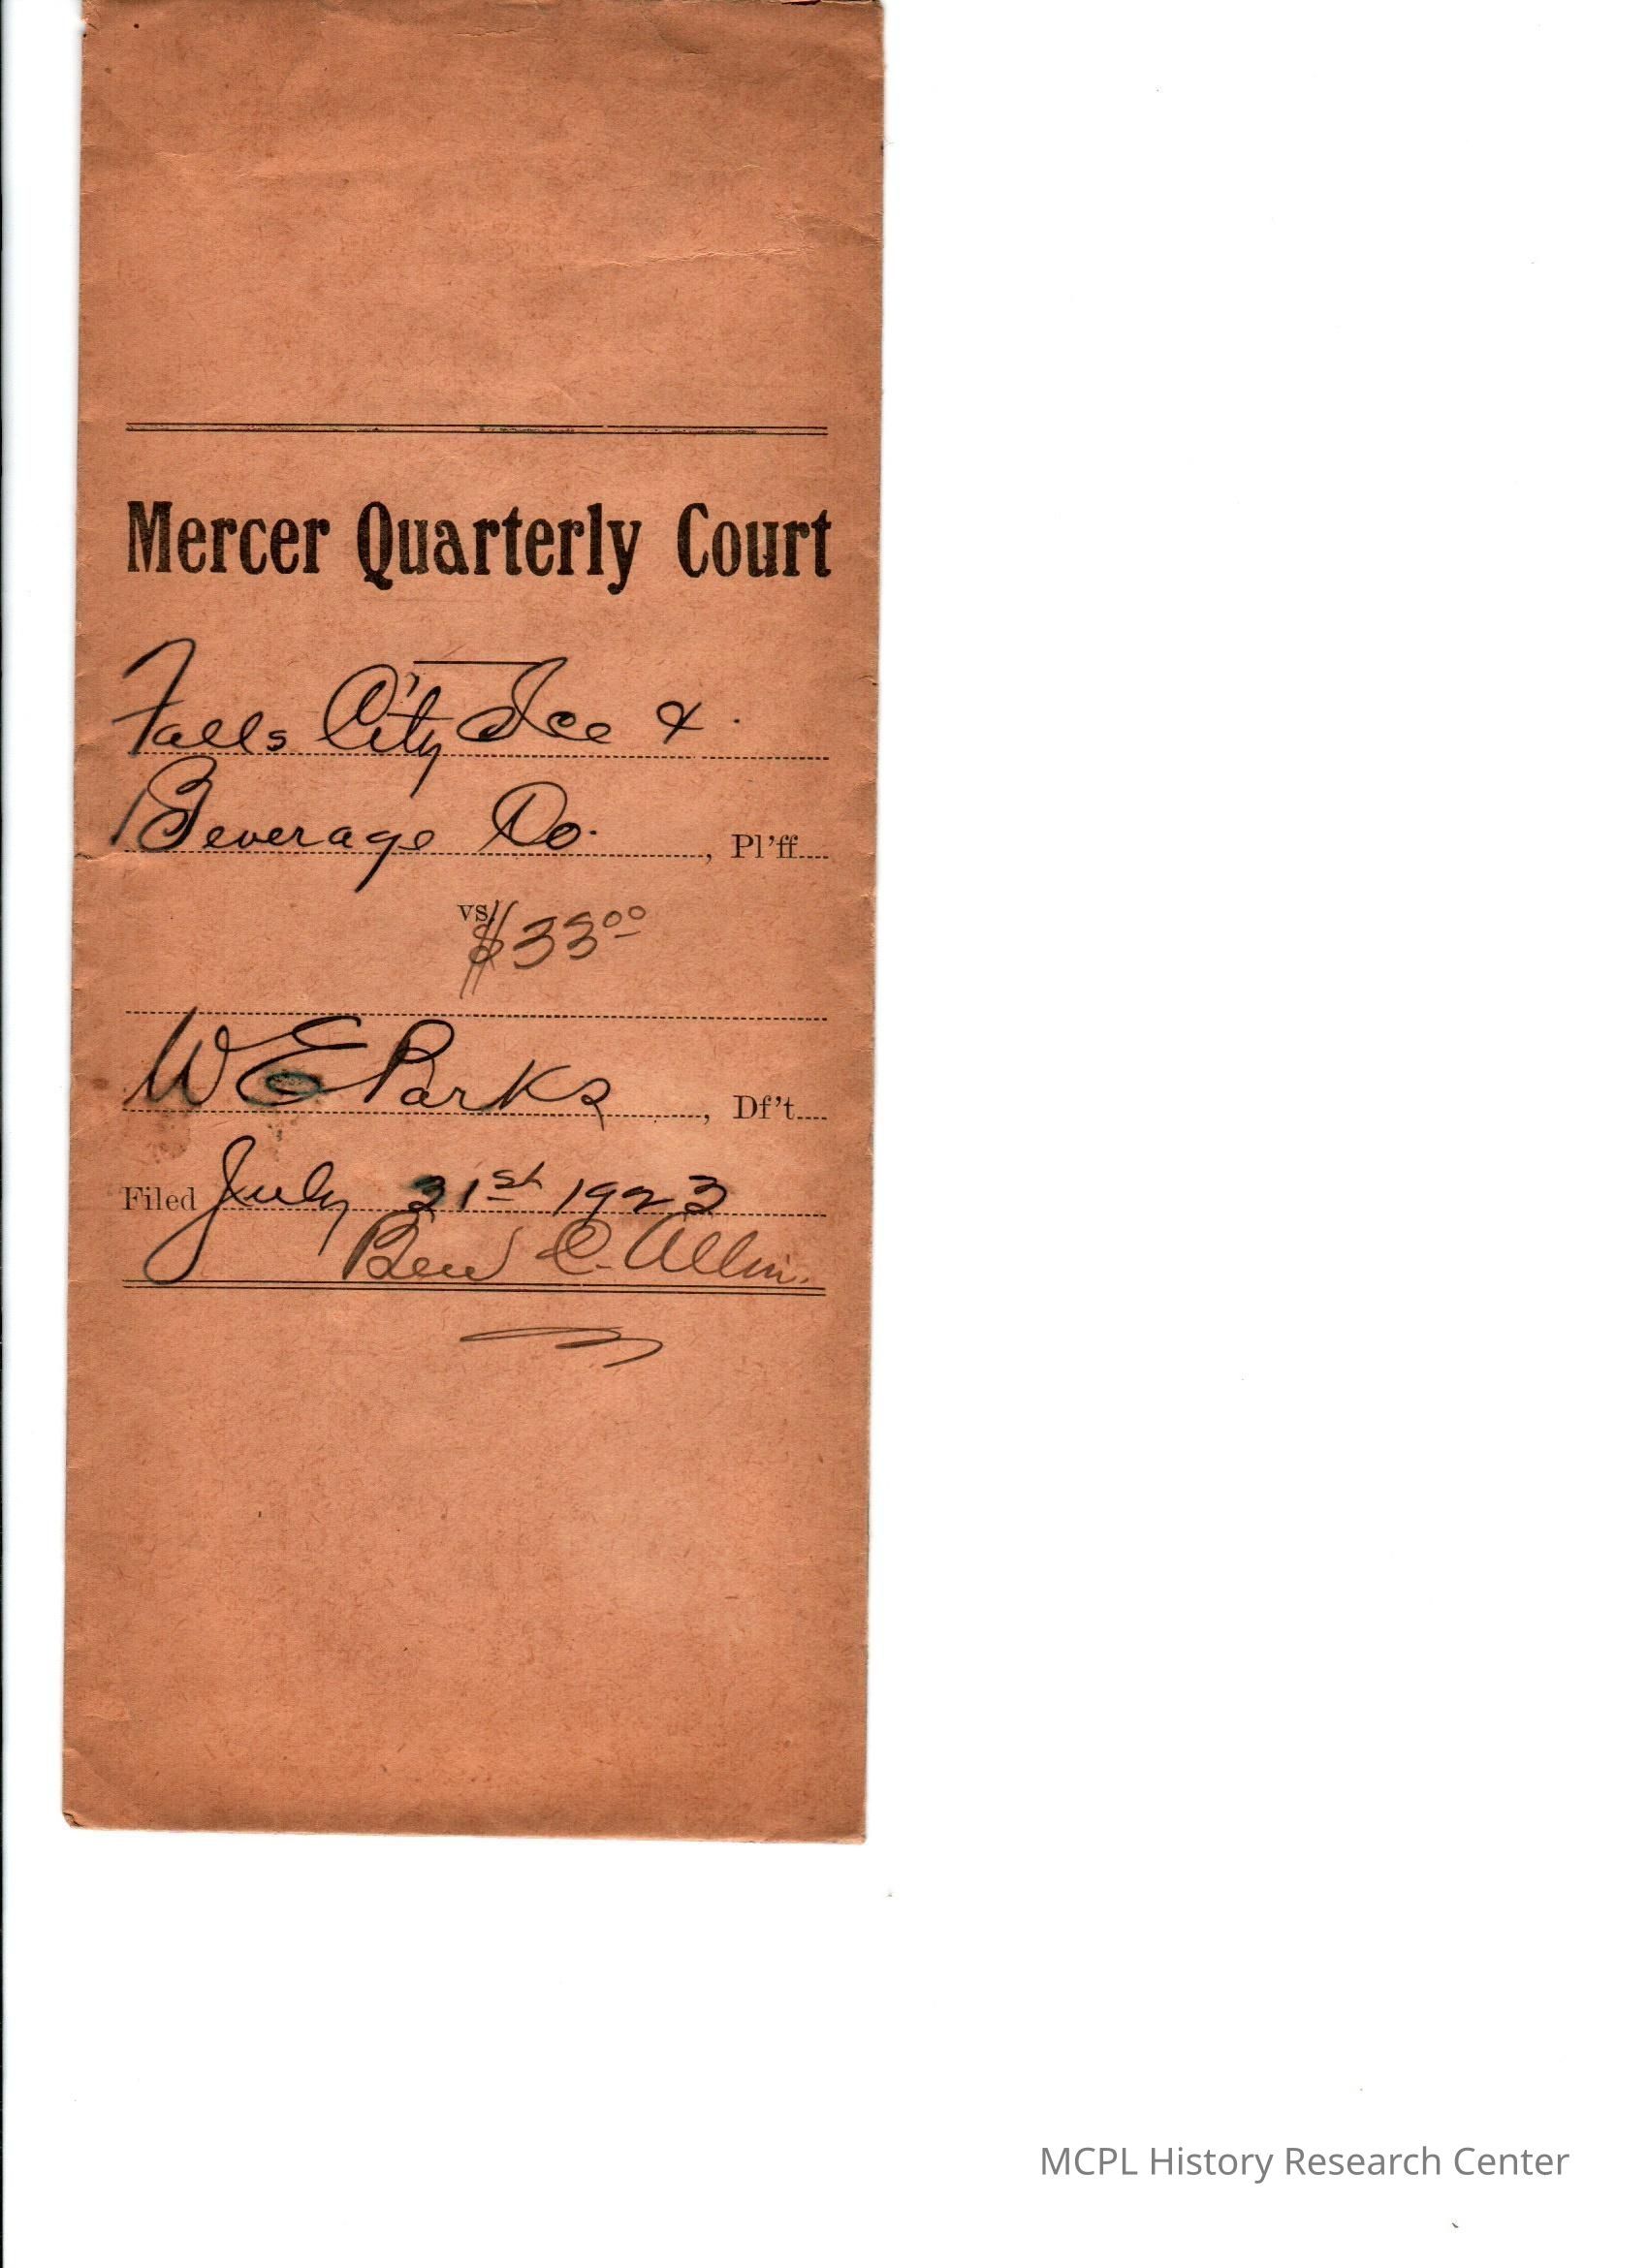 Mercer Quarterly Court
Falls City Ice &
Beverage Co. , Pl'ff
vs. $33.00
W E Parks , Df't
Filed July 21st 1923
Ben C. Allin
MCPL History Research Center